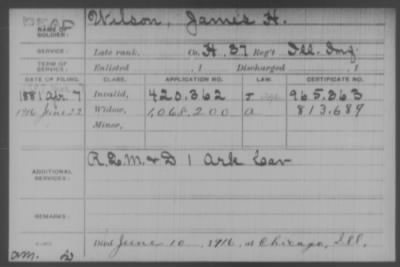 NAME OF SOLDIER: Wilson, James H.
SERVICE: Late rank, Co. H, 37 Reg't Ill. Inf.
TERM OF SERVICE: Enlisted , 1 Discharged , 1
DATE OF FILING. CLASS. APPLICATION NO. LAW. CERTIFICATE NO.
1881 Apr. 7 Invalid, 420.362 965.363
1916 June 22 Widow, 1,068,200 a 813.689
Minor,
ADDITIONAL SERVICES: R.Q.M. & D 1 Ark Cav
REMARKS:
Died June 10, 1916, at Chicago, Ill.